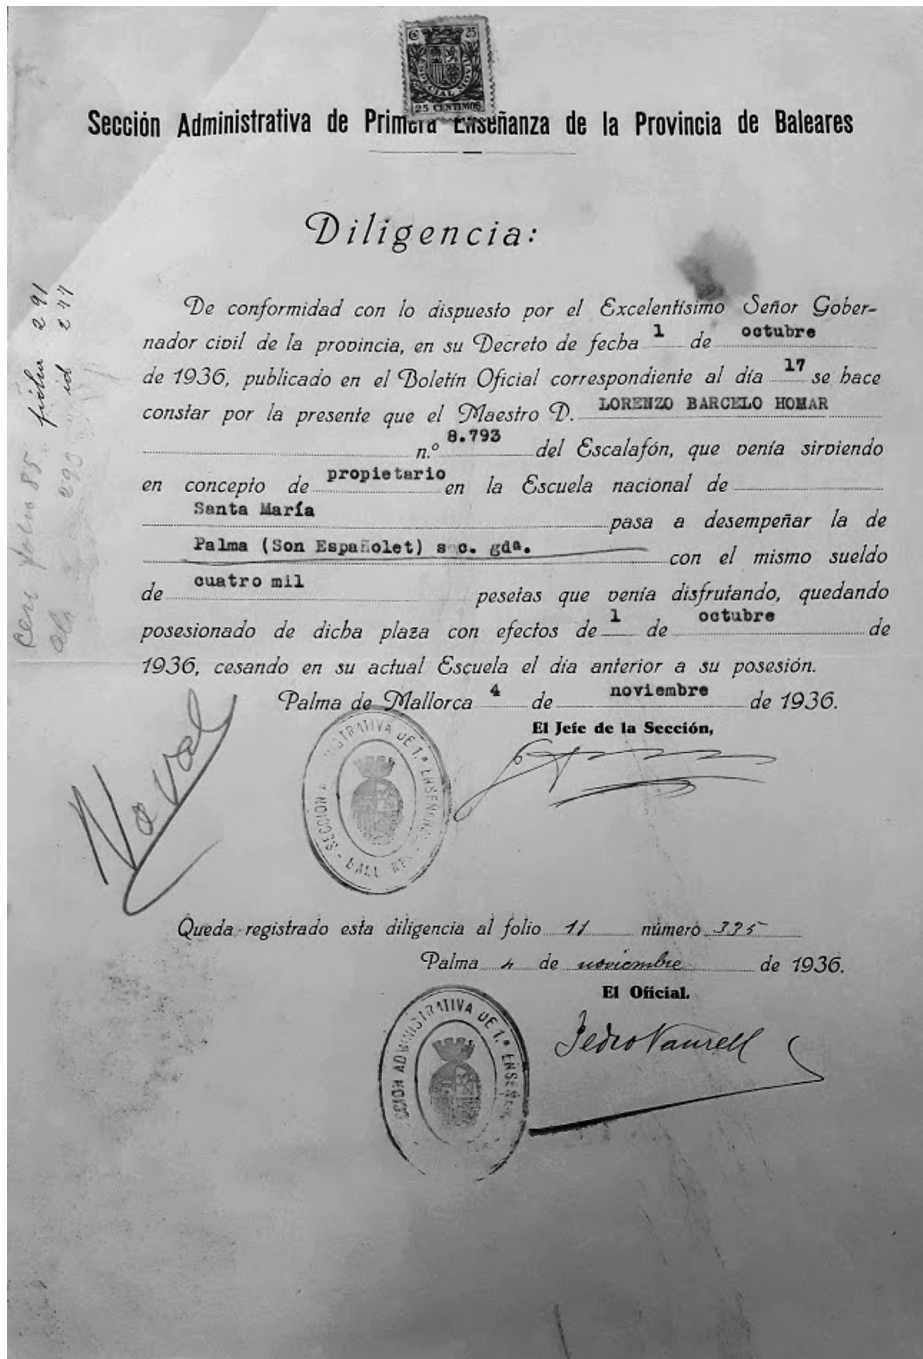 25
ESPECIAL MOVIL
25 CENTIMOS
Sección Administrativa de Primera Enseñanza de la Provincia de Baleares
Diligencia:
De conformidad con lo dispuesto por el Excelentísimo Señor Gober-
nador civil de la provincia, en su Decreto de fecha 1 de octubre
de 1936, publicado en el Boletín Oficial correspondiente al día 17 se hace
constar por la presente que el Maestro D. LORENZO BARCELO HOMAR
n.º 8.793 del Escalafón, que venía sirviendo
en concepto de propietario en la Escuela nacional de
Santa María pasa a desempeñar la de
Palma (Son Españolet) s c. gdª. con el mismo sueldo
de cuatro mil pesetas que venía disfrutando, quedando
posesionado de dicha plaza con efectos de 1 de octubre de
1936, cesando en su actual Escuela el día anterior a su posesión.
Palma de Mallorca 4 de noviembre de 1936.
El Jefe de la Sección,
No vale
SECCION ADMINISTRATIVA DE 1.ª ENSEÑANZA
Queda registrado esta diligencia al folio 11 número 395
Palma 4 de noviembre de 1936.
El Oficial.
SECCION ADMINISTRATIVA DE 1.ª ENSEÑANZA
folio 85
291